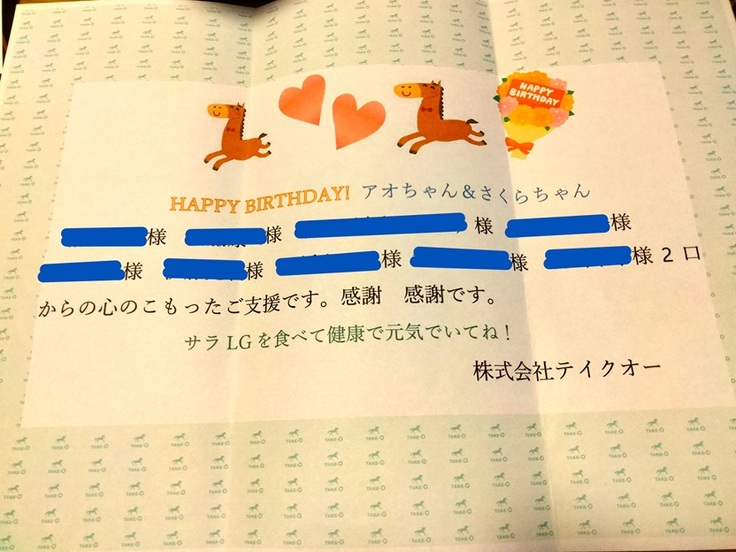 HAPPY BIRTHDAY
HAPPY BIRTHDAY! アオちゃん&さくらちゃん
様 様 様 様
様 様 様 様 様 2 口
からの心のこもったご支援です。感謝 感謝です。
サラ LG を食べて健康で元気でいてね！
株式会社テイクオー
TAKE-O